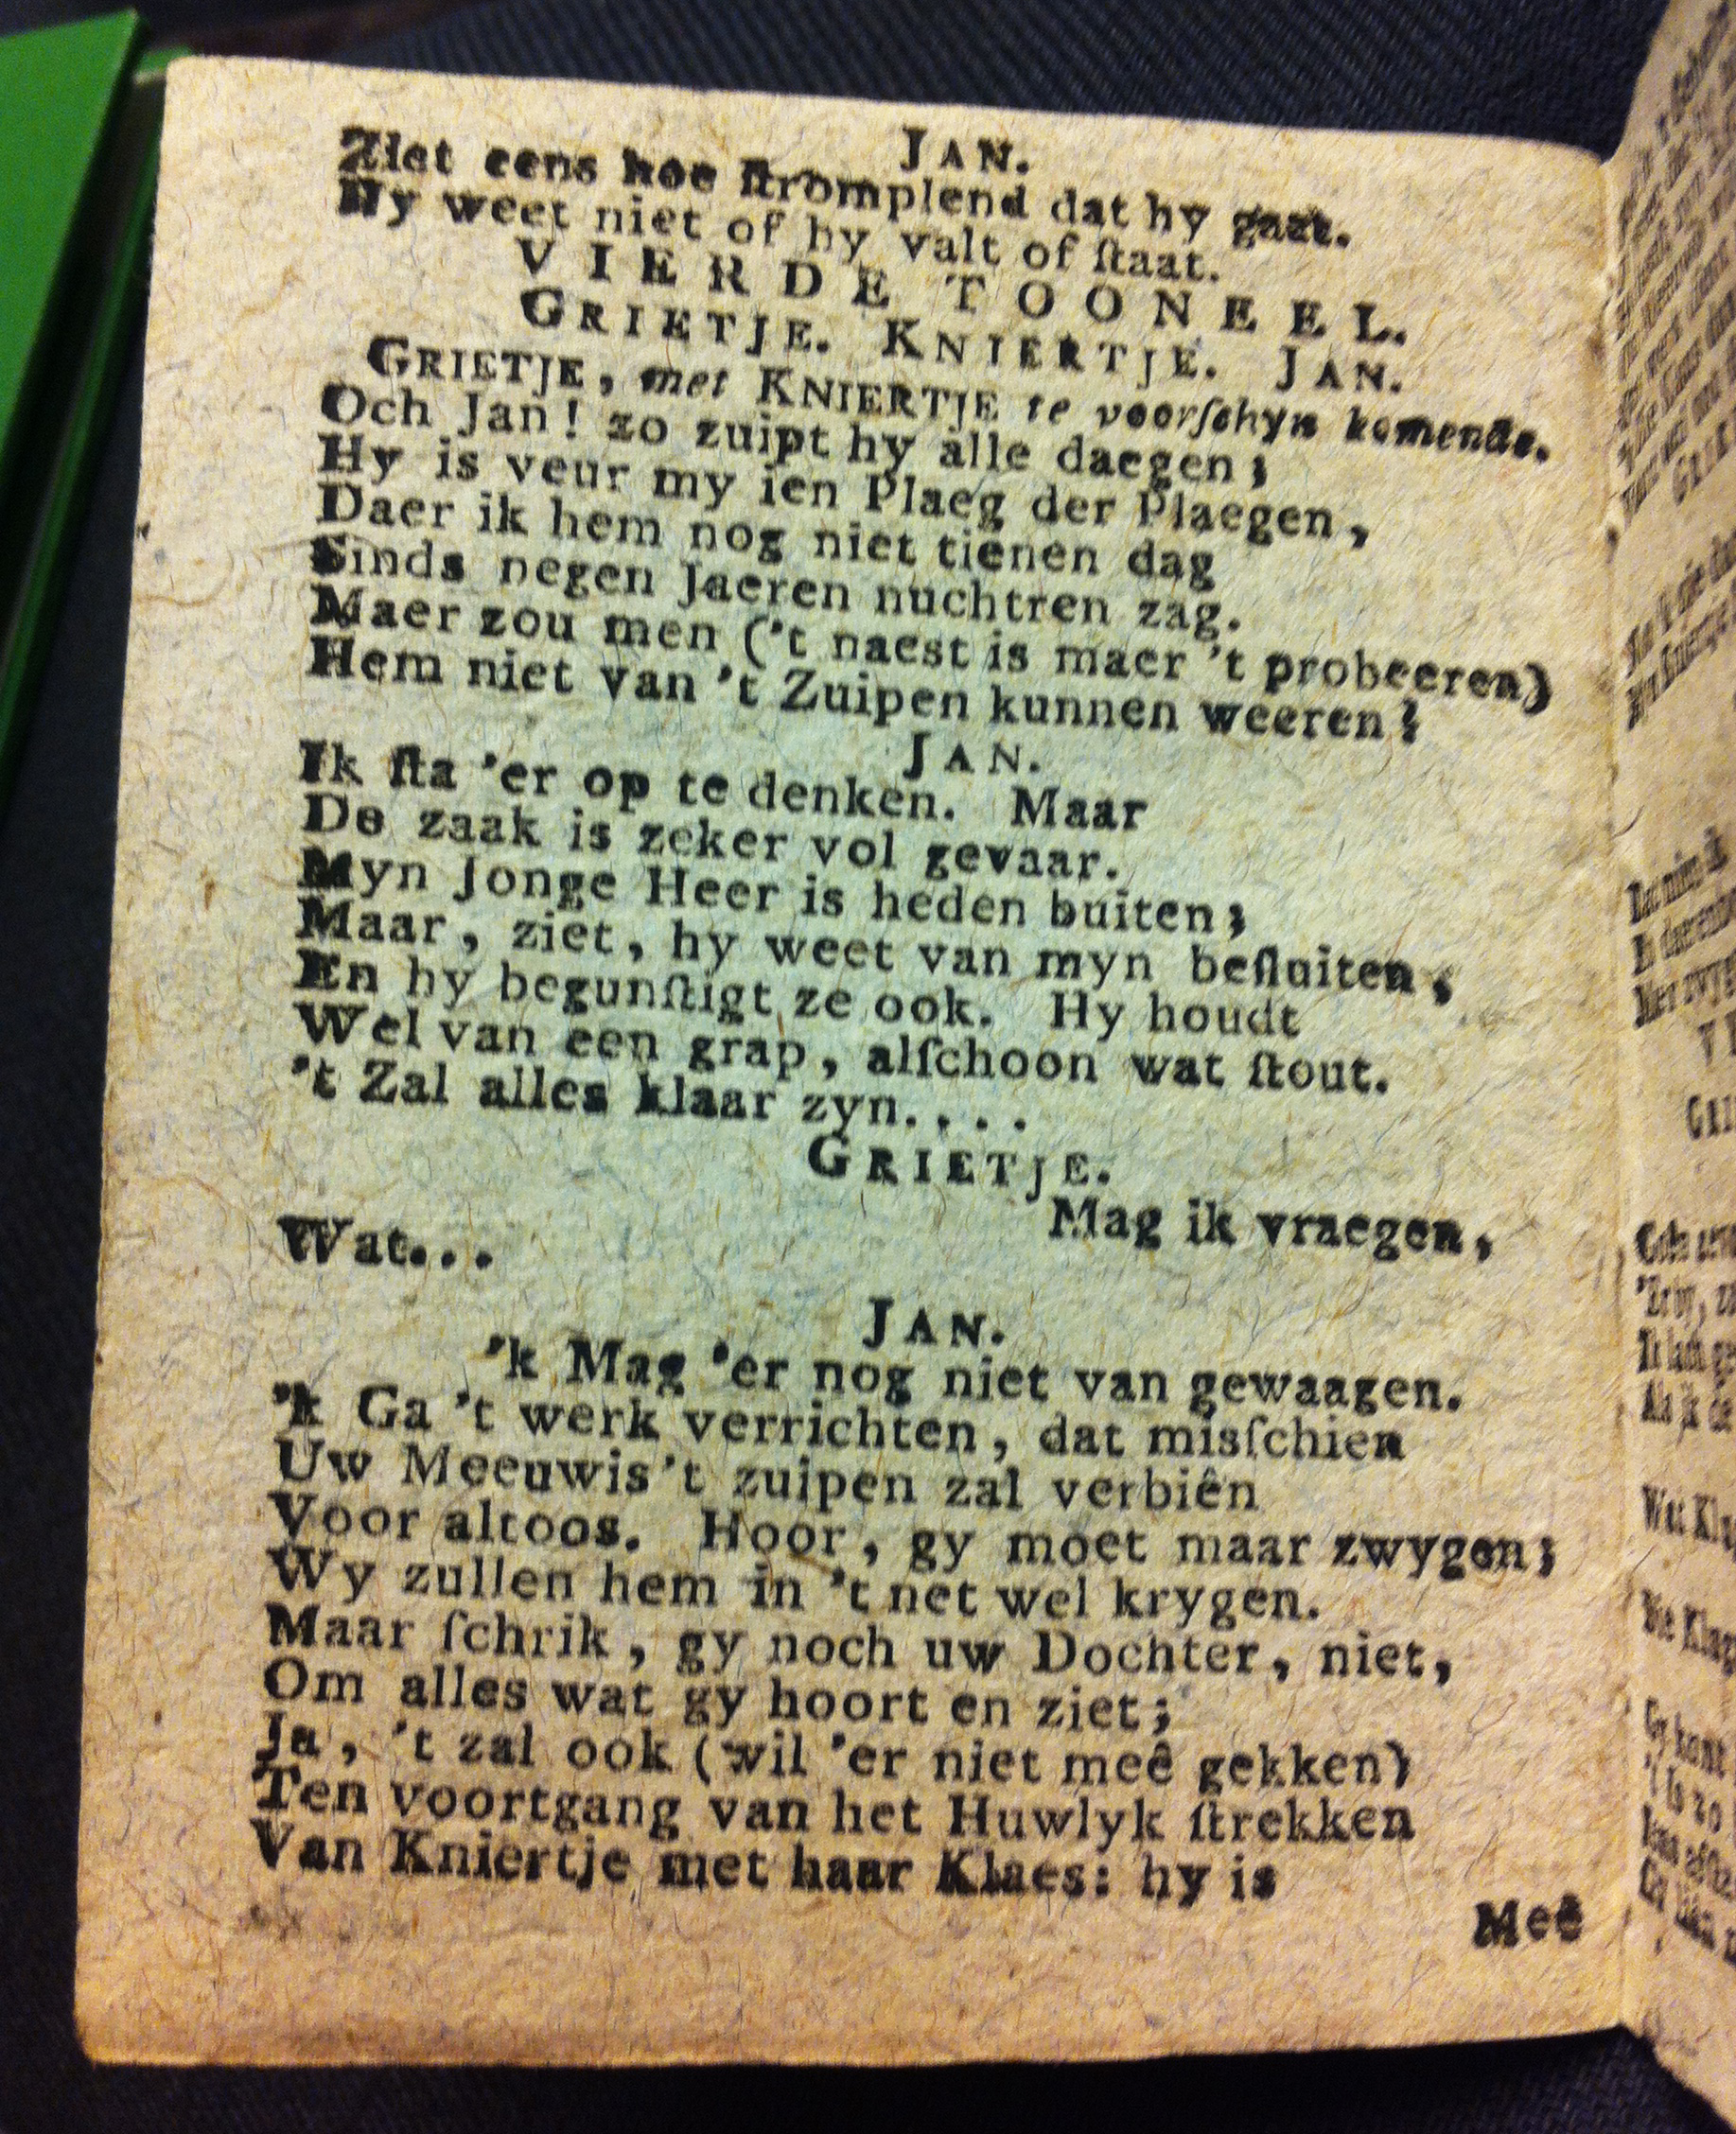 JAN.
Ziet eens hoe ſtromplend dat hy gaat.
Hy weet niet of hy valt of ſtaat.
VIERDE TOONEEL.
GRIETJE. KNIERTJE. JAN.
GRIETJE, met KNIERTJE te voorſchyn komende.
Och Jan! zo zuipt hy alle daegen;
Hy is veur my ien Plaeg der Plaegen,
Daer ik hem nog niet tienen dag
Sinds negen Jaeren nuchtren zag.
Maer zou men ('t naest is maer 't probeeren)
Hem niet van 't Zuipen kunnen weeren?
JAN.
Ik ſta 'er op te denken. Maar
De zaak is zeker vol gevaar.
Myn Jonge Heer is heden buiten;
Maar, ziet, hy weet van myn beſluiten,
En hy begunſtigt ze ook. Hy houdt
Wel van een grap, alſchoon wat ſtout.
't Zal alles klaar zyn....
GRIETJE.
Mag ik vraegen,
Wat...
JAN.
'k Mag 'er nog niet van gewaagen.
'k Ga 't werk verrichten, dat misſchien
Uw Meeuwis 't zuipen zal verbiên
Voor altoos. Hoor, gy moet maar zwygen;
Wy zullen hem in 't net wel krygen.
Maar ſchrik, gy noch uw Dochter, niet,
Om alles wat gy hoort en ziet;
Ja, 't zal ook (wil 'er niet meê gekken)
Ten voortgang van het Huwlyk ſtrekken
Van Kniertje met haar Klaes: hy is
Meê